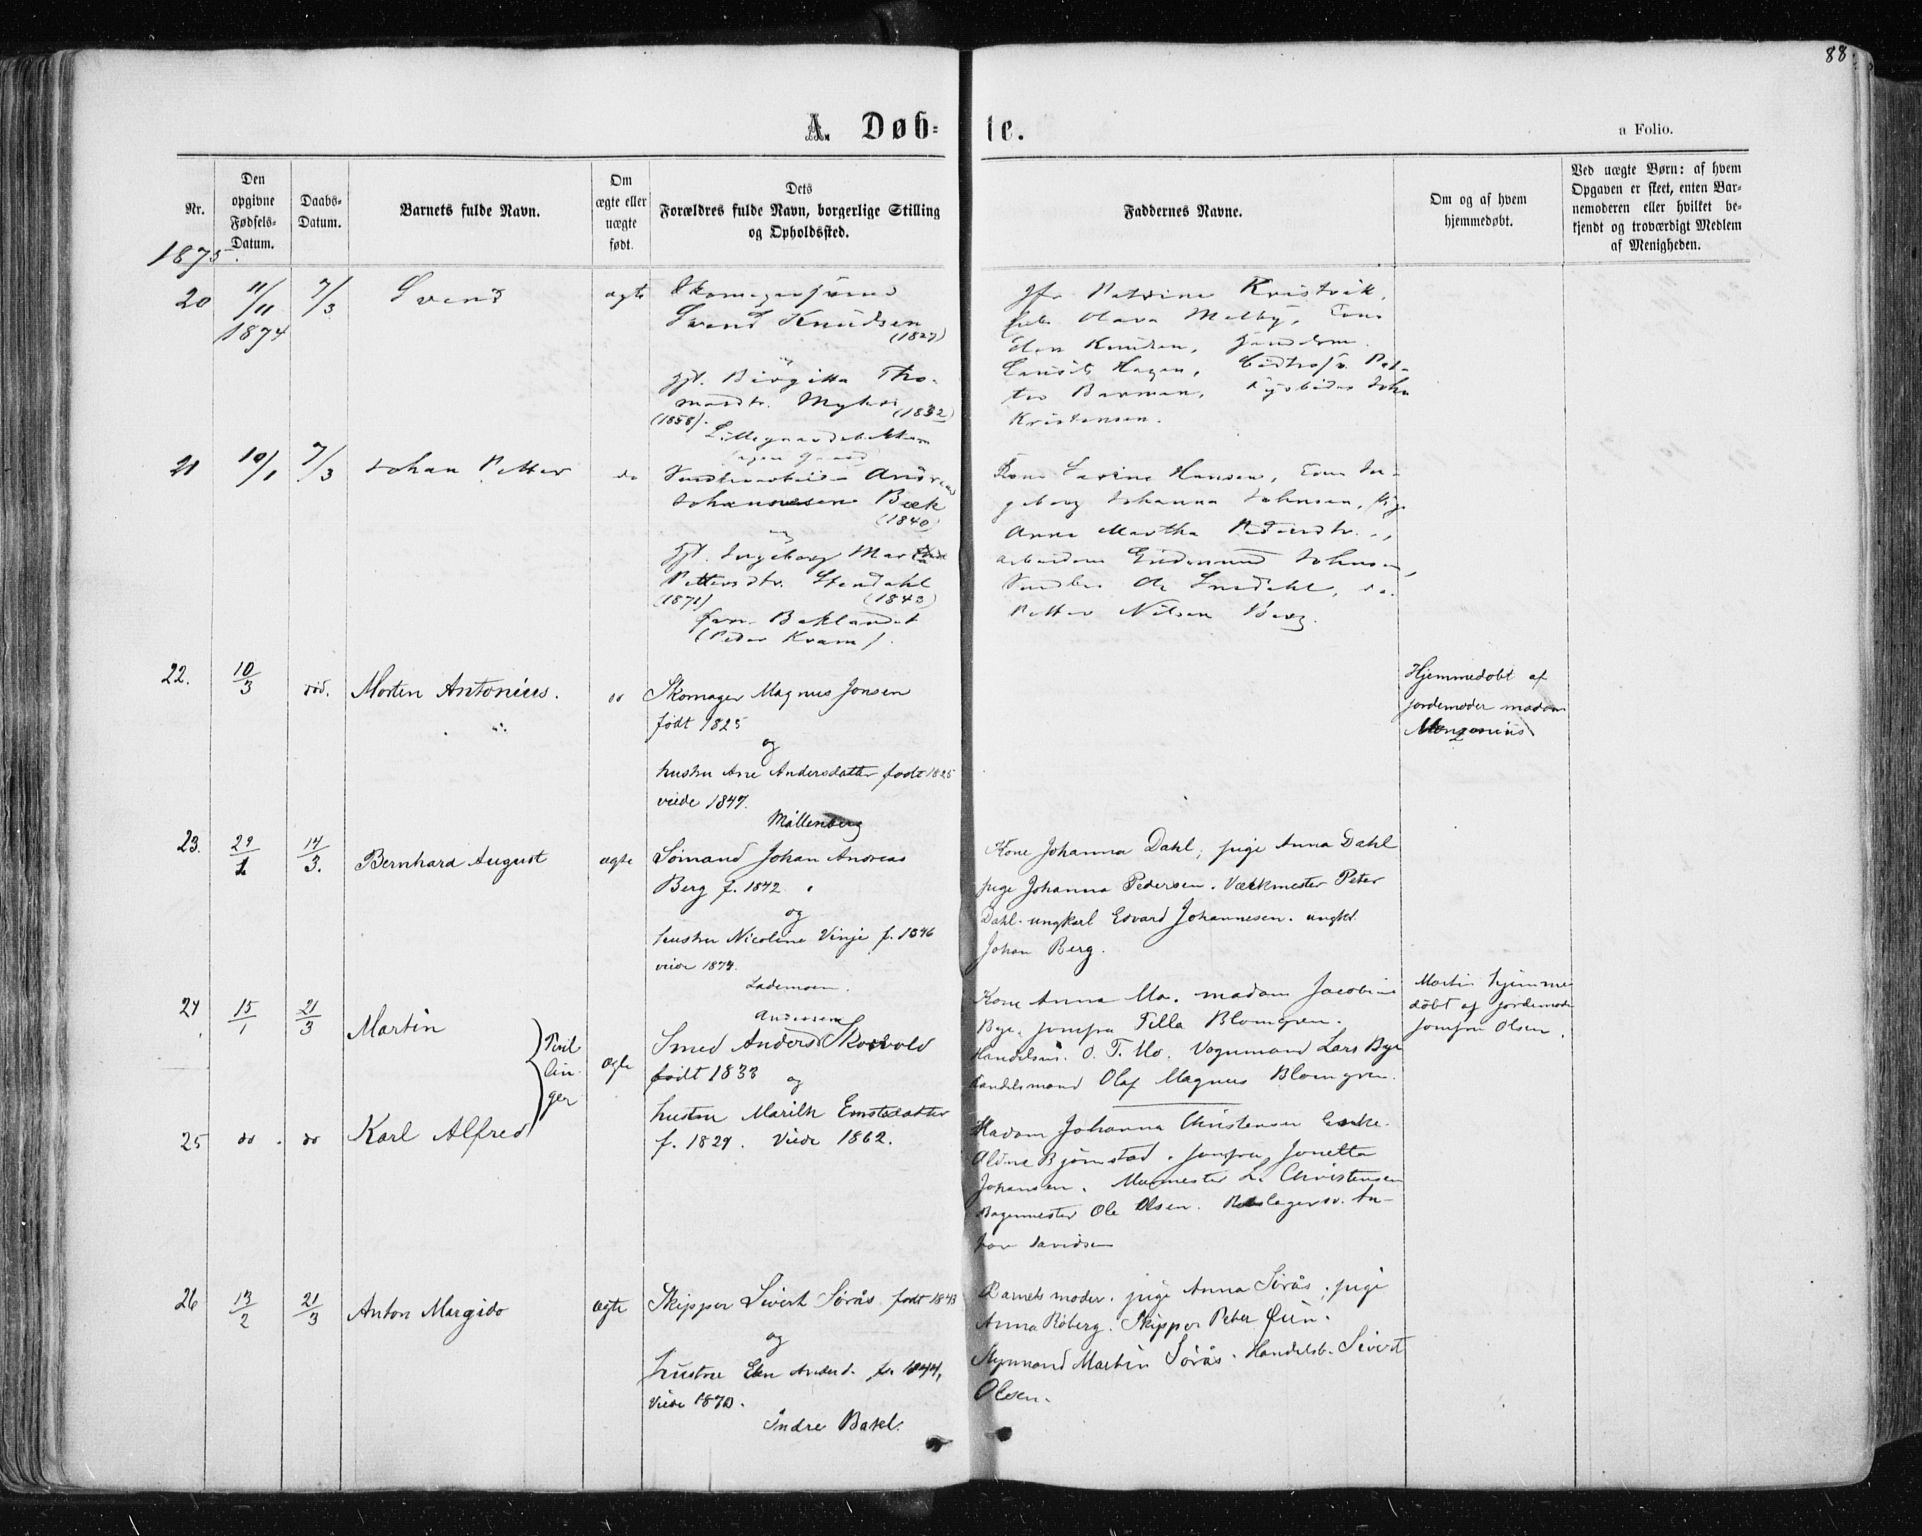 88
A. Døb=
te.
a Folio.
Nr.
Den
opgivne
Fødsels-
Datum.
Daabs-
Datum.
Barnets fulde Navn.
Om
ægte eller
uægte
født.
Dets
Forældres fulde Navn, borgerlige Stilling
og Opholdssted.
Faddernes Navne.
Om og af hvem
hjemmedøbt.
Ved uægte Børn: af hvem
Opgaven er skeet, enten Bar-
nemoderen eller hvilket be-
kjendt og troværdigt Medlem
af Menigheden.
1875.
20
11/11
1874
7/3
Svend
ægte
Svend Knudsen
(1827)
og
Gjt. Birgitta Tho-
masdtr. Myhre (1832)
(1858).
Jfr Petrine Kristvik,
Olava Melby, Kone
Elen Knudsen,
Laurits Hagen,
Kristensen.
21
10/1
7/3
Johan Petter
do
Andreas
Johannesen Bæk
(1840)
og
Gjt. Ingeborg Martha
Pettersdtr. Stendahl
(1871) (1843)
Baklandet
(Peder Kvam).
Kone Hansen, Kone In-
geborg Johanna Johnsen, Pige
Anna Martha Pedersdtr.,
Johnsen,
Petter Nilsen Berg.
22.
10/3
død.
Morten Antonius.
do
Skomager Magnus Jonsen
født 1825
og
hustru Ane Andersdatter født 1825
viede 1847.
Møllenberg
Hjemmedøbt af
jordemoder madam
23.
29/1
14/3.
Bernhard August
ægte
Sömand Johan Andreas
Berg f. 1842.
og
hustru Nicoline Vinje f. 1846
viede 1874.
Lademoen.
Kone Johanna Dahl, pige Anna Dahl
pige Johanna Pedersen. Værkmester Peter
Dahl. ungkarl Edvard Johannesen. ungkl.
Johan Berg.
24
15/1
21/3
Martin
Tvil
lin
ger
ægte
Andersen
Smed Anders Skorvold
født 1833
og
hustru Marith Ernstsdatter
f. 1829. Viede 1862.
Kone Anna Mo. madam Jacobine
Bye. jomfru Tilla Blomgren.
Handelsm. O. T. Mo. Vognmand Lars Bye
Handelsmand Olaf Magnus Blomgren.
Martin hjemme
døbt af jordemoder
jomfru Olsen.
25
do.
do
Karl Alfred
Madam Johanna Christensen Enke.
Aldine Bjørnstad. jomfru Jonetta
Johansen. Murmester L. Christensen
Bagermester Ole Olsen. An-
ton Davidsen
26
13/2
21/3
Anton Margido
ægte
Skipper Sivert Sörås født 1843
og
hustru Elen Andersd. f. 1844,
Viede 1870.
Indre Bakl.
Barnets moder. pige Anna Sörås; pige
Anna Röberg. Skipper Peter Quin.
Styrmand Martin Sörås. Handelsb. Sivert
Olsen.